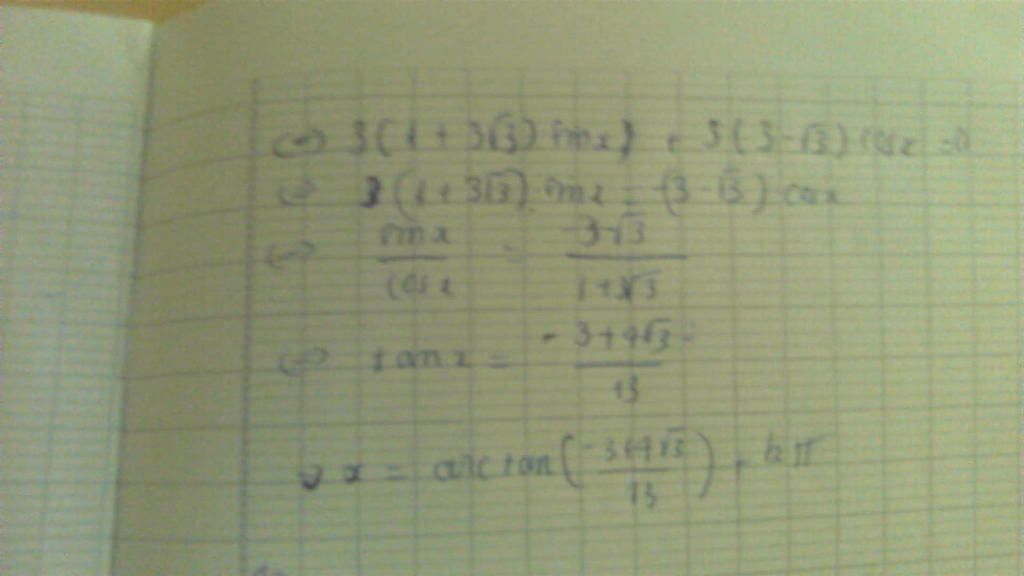 ⇔ 3(1 + 3√3) sin x + 3(3 - √3) cos x = 0
⇔ (1 + 3√3) sin x = -(3 - √3) cos x
⇔ sin x / cos x = -3√3 / 1+3√3
⇔ tan x = - 3+4√3 / 13
x = arctan(-3+4√3 / 13) + kπ